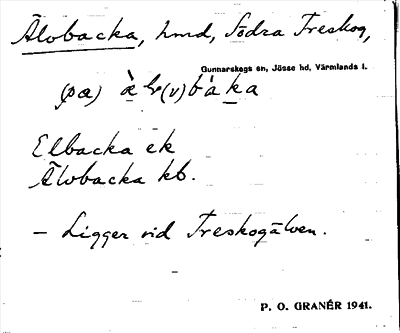 Älvbacka, hmd, Södra Treskog,
Gunnarskogs sn, Jösse hd, Värmlands l.
(pα)
Elbacka ek
Älvbacka kb.
— Ligger vid Treskogälven.
P. O. GRANÉR 1941.